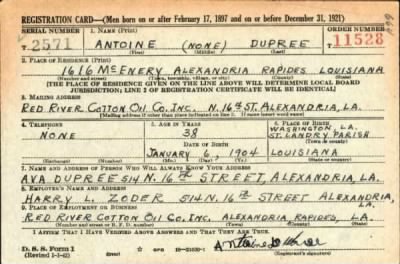 REGISTRATION CARD—(Men born on or after February 17, 1897 and on or before December 31, 1921)
SERIAL NUMBER 1. NAME (Print) ORDER NUMBER
T 2571 ANTOINE (NONE) DUPREE 11528
(First) (Middle) (Last)
2. PLACE OF RESIDENCE (Print)
1616 McENERY ALEXANDRIA RAPIDES LOUISIANA
(Number and street) (Town, township, village, or city) (County) (State)
[THE PLACE OF RESIDENCE GIVEN ON THE LINE ABOVE WILL DETERMINE LOCAL BOARD
JURISDICTION; LINE 2 OF REGISTRATION CERTIFICATE WILL BE IDENTICAL]
3. MAILING ADDRESS
RED RIVER COTTON OIL CO. INC. N. 16th ST. ALEXANDRIA, LA.
[Mailing address if other than place indicated on line 2. If same insert word same]
4. TELEPHONE 5. AGE IN YEARS 6. PLACE OF BIRTH
NONE 38 WASHINGTON, LA.
ST. LANDRY PARISH
DATE OF BIRTH (Town or county)
JANUARY 6, 1904 LOUISIANA
(Exchange) (Number) (Mo.) (Day) (Yr.) (State or country)
7. NAME AND ADDRESS OF PERSON WHO WILL ALWAYS KNOW YOUR ADDRESS
AVA DUPREE 514 N. 16th STREET, ALEXANDRIA, LA.
8. EMPLOYER'S NAME AND ADDRESS
HARRY L. ZODER 514 N. 16th STREET ALEXANDRIA,
9. PLACE OF EMPLOYMENT OR BUSINESS
RED RIVER COTTON OIL CO. INC., ALEXANDRIA RAPIDES, LA.
(Number and street or R. F. D. number) (Town) (County) (State)
I AFFIRM THAT I HAVE VERIFIED ABOVE ANSWERS AND THAT THEY ARE TRUE.
D. S. S. Form 1
(Revised 1-1-42) (over)